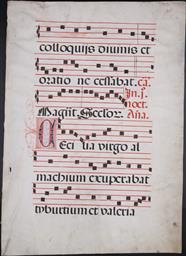 colloquijs diuinis et
oratio ne cessabat. ca.
In. j.
noct.
Magnit. Seclor. Aña.
Ceci lia virgo al
machium exuperabat
tyburtium et valeria